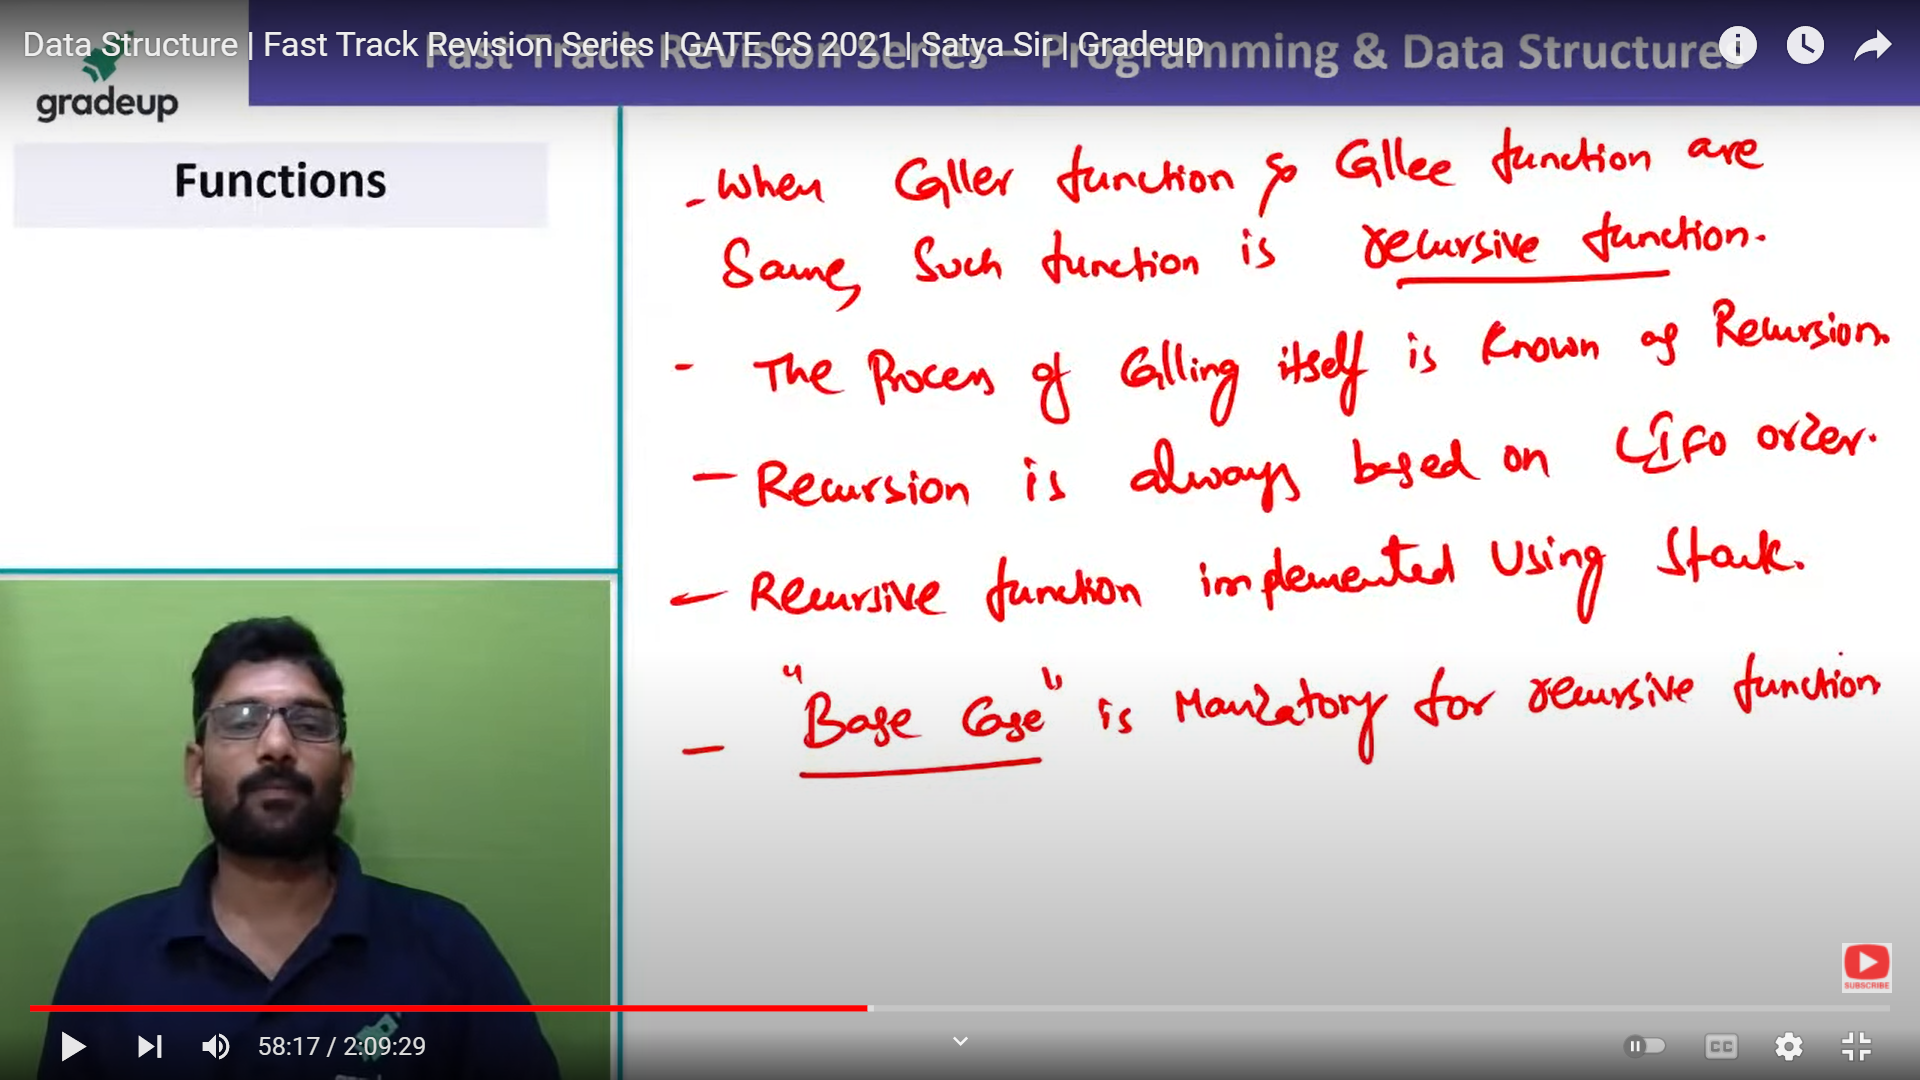 Data Structure | Fast Track Revision Series | GATE CS 2021 | Satya Sir | Gradeup
Fast Track Revision Series - Programming & Data Structures
gradeup
Functions
- When Caller function & Callee function are
Same, Such function is recursive function.
- The Process of Calling itself is known as Recursion.
- Recursion is always based on LIFO order.
- Recursive function implemented Using Stack.
- "Base Case" is Mandatory for recursive function
SUBSCRIBE
58:17 / 2:09:29
CC